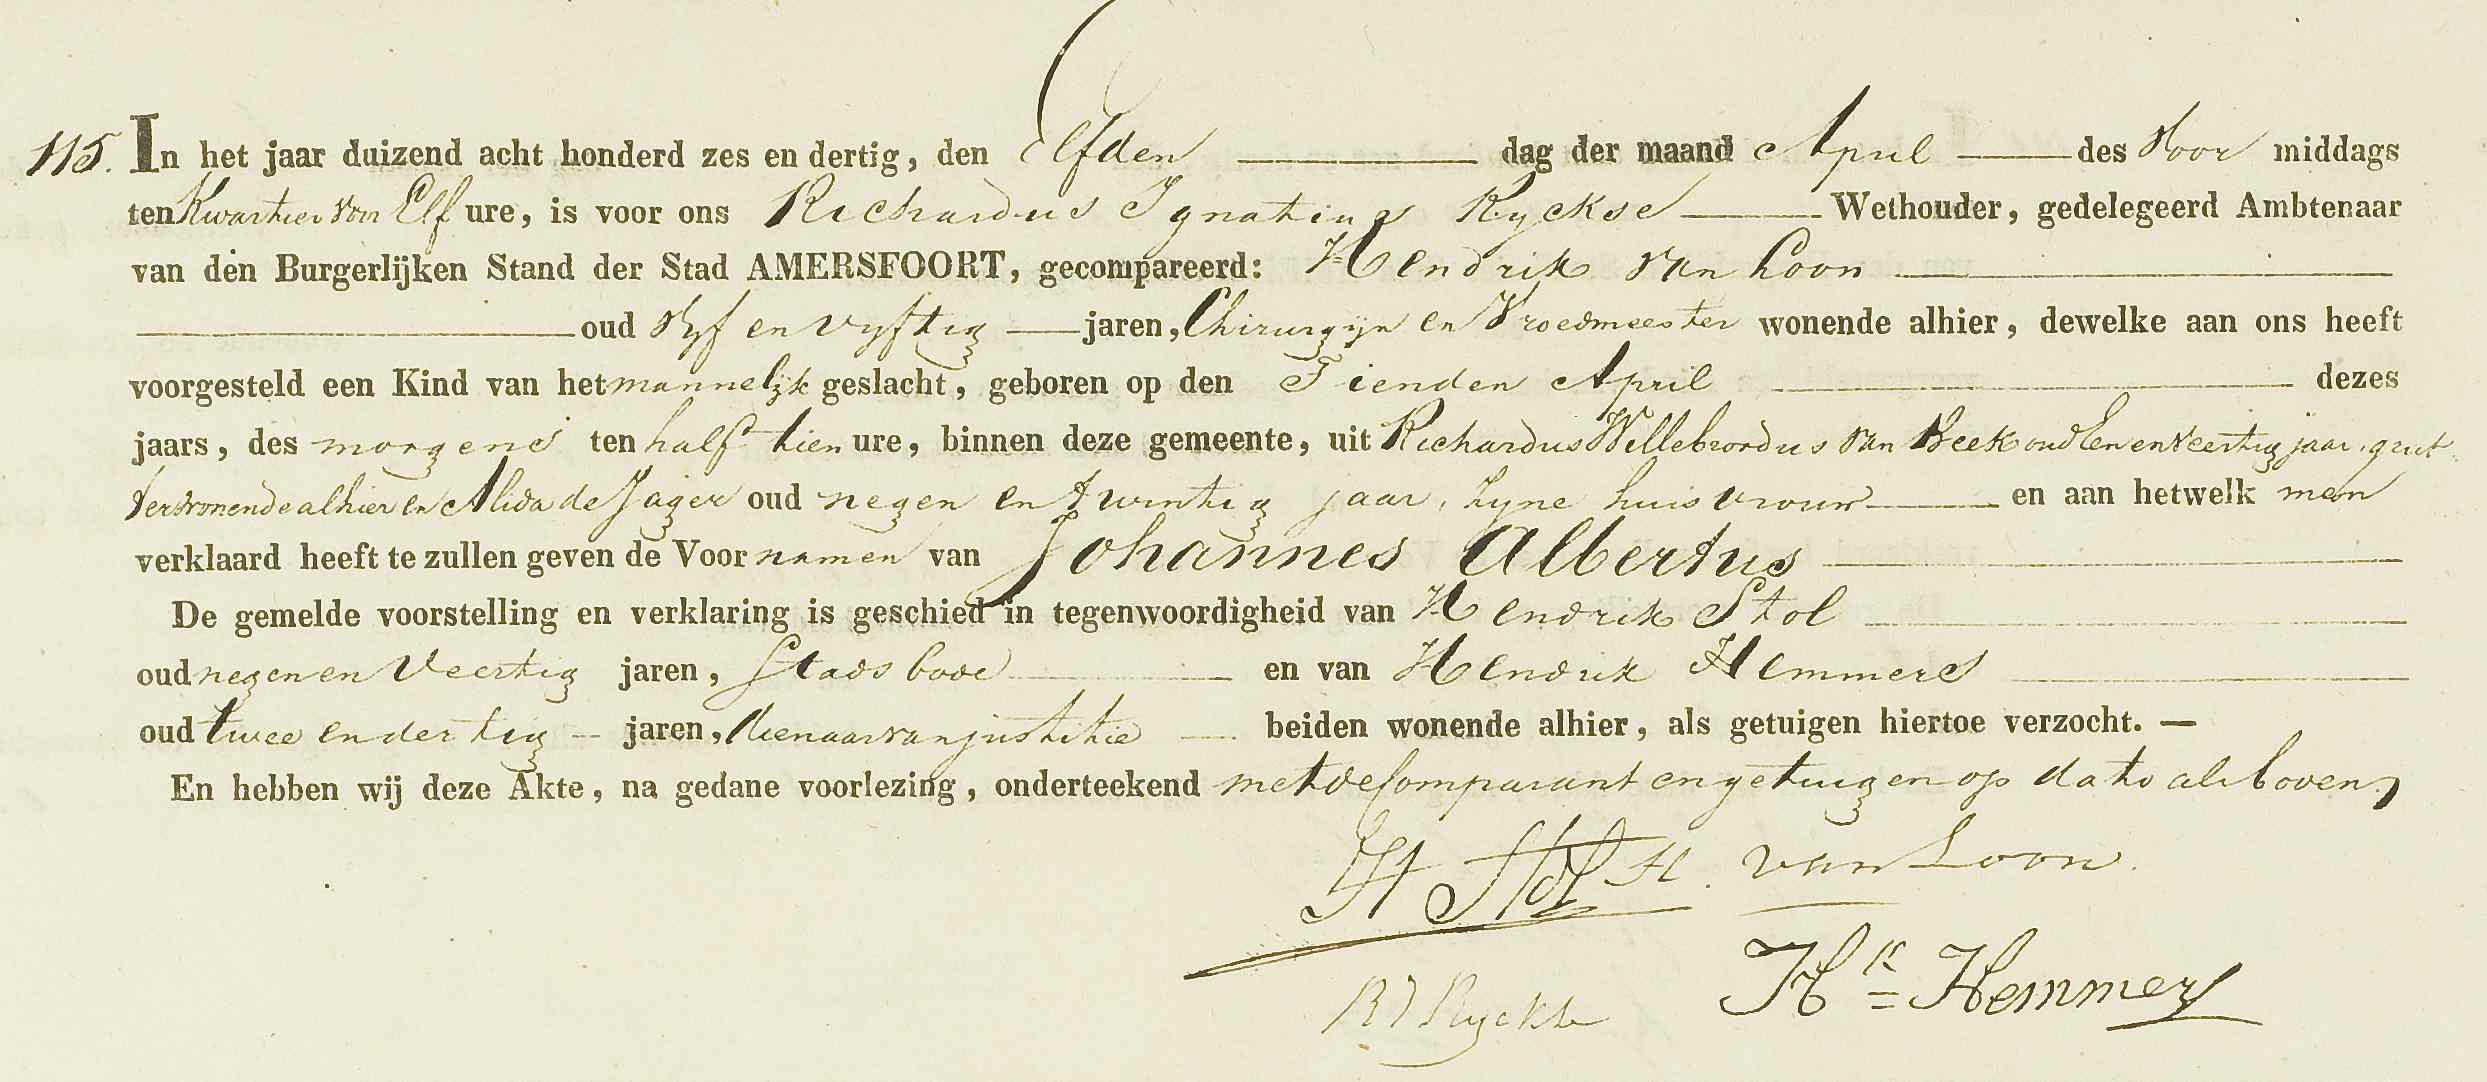 115. In het jaar duizend acht honderd zes en dertig, den Elfden dag der maand April des Voor middags
ten Kwartier voor Elf ure, is voor ons Richardus Ignatius Ryckse Wethouder, gedelegeerd Ambtenaar
van den Burgerlijken Stand der Stad AMERSFOORT, gecompareerd: Hendrik van Loon
oud Vyf en vyftig jaren, Chirurgyn en Vroedmeester wonende alhier, dewelke aan ons heeft
voorgesteld een Kind van het mannelyk geslacht, geboren op den Tienden April dezes
jaars, des morgens ten half tien ure, binnen deze gemeente, uit Richardus Willebrordus van Beek oud Een en Veertig jaar, grut
ter wonende alhier en Alida de Jager oud negen en twintig jaar, zyne huisvrouw en aan hetwelk men
verklaard heeft te zullen geven de Voor namen van Johannes Albertus
De gemelde voorstelling en verklaring is geschied in tegenwoordigheid van Hendrik Stol
oud negen en Veertig jaren, Stads bode en van Hendrik Hemmers
oud twee en dertig jaren, dienaar van justitie beiden wonende alhier, als getuigen hiertoe verzocht. —
En hebben wij deze Akte, na gedane voorlezing, onderteekend met de Comparant en getuigen op dato als boven,
H Stol H. van Loon.
RI Ryckse Hk Hemmers